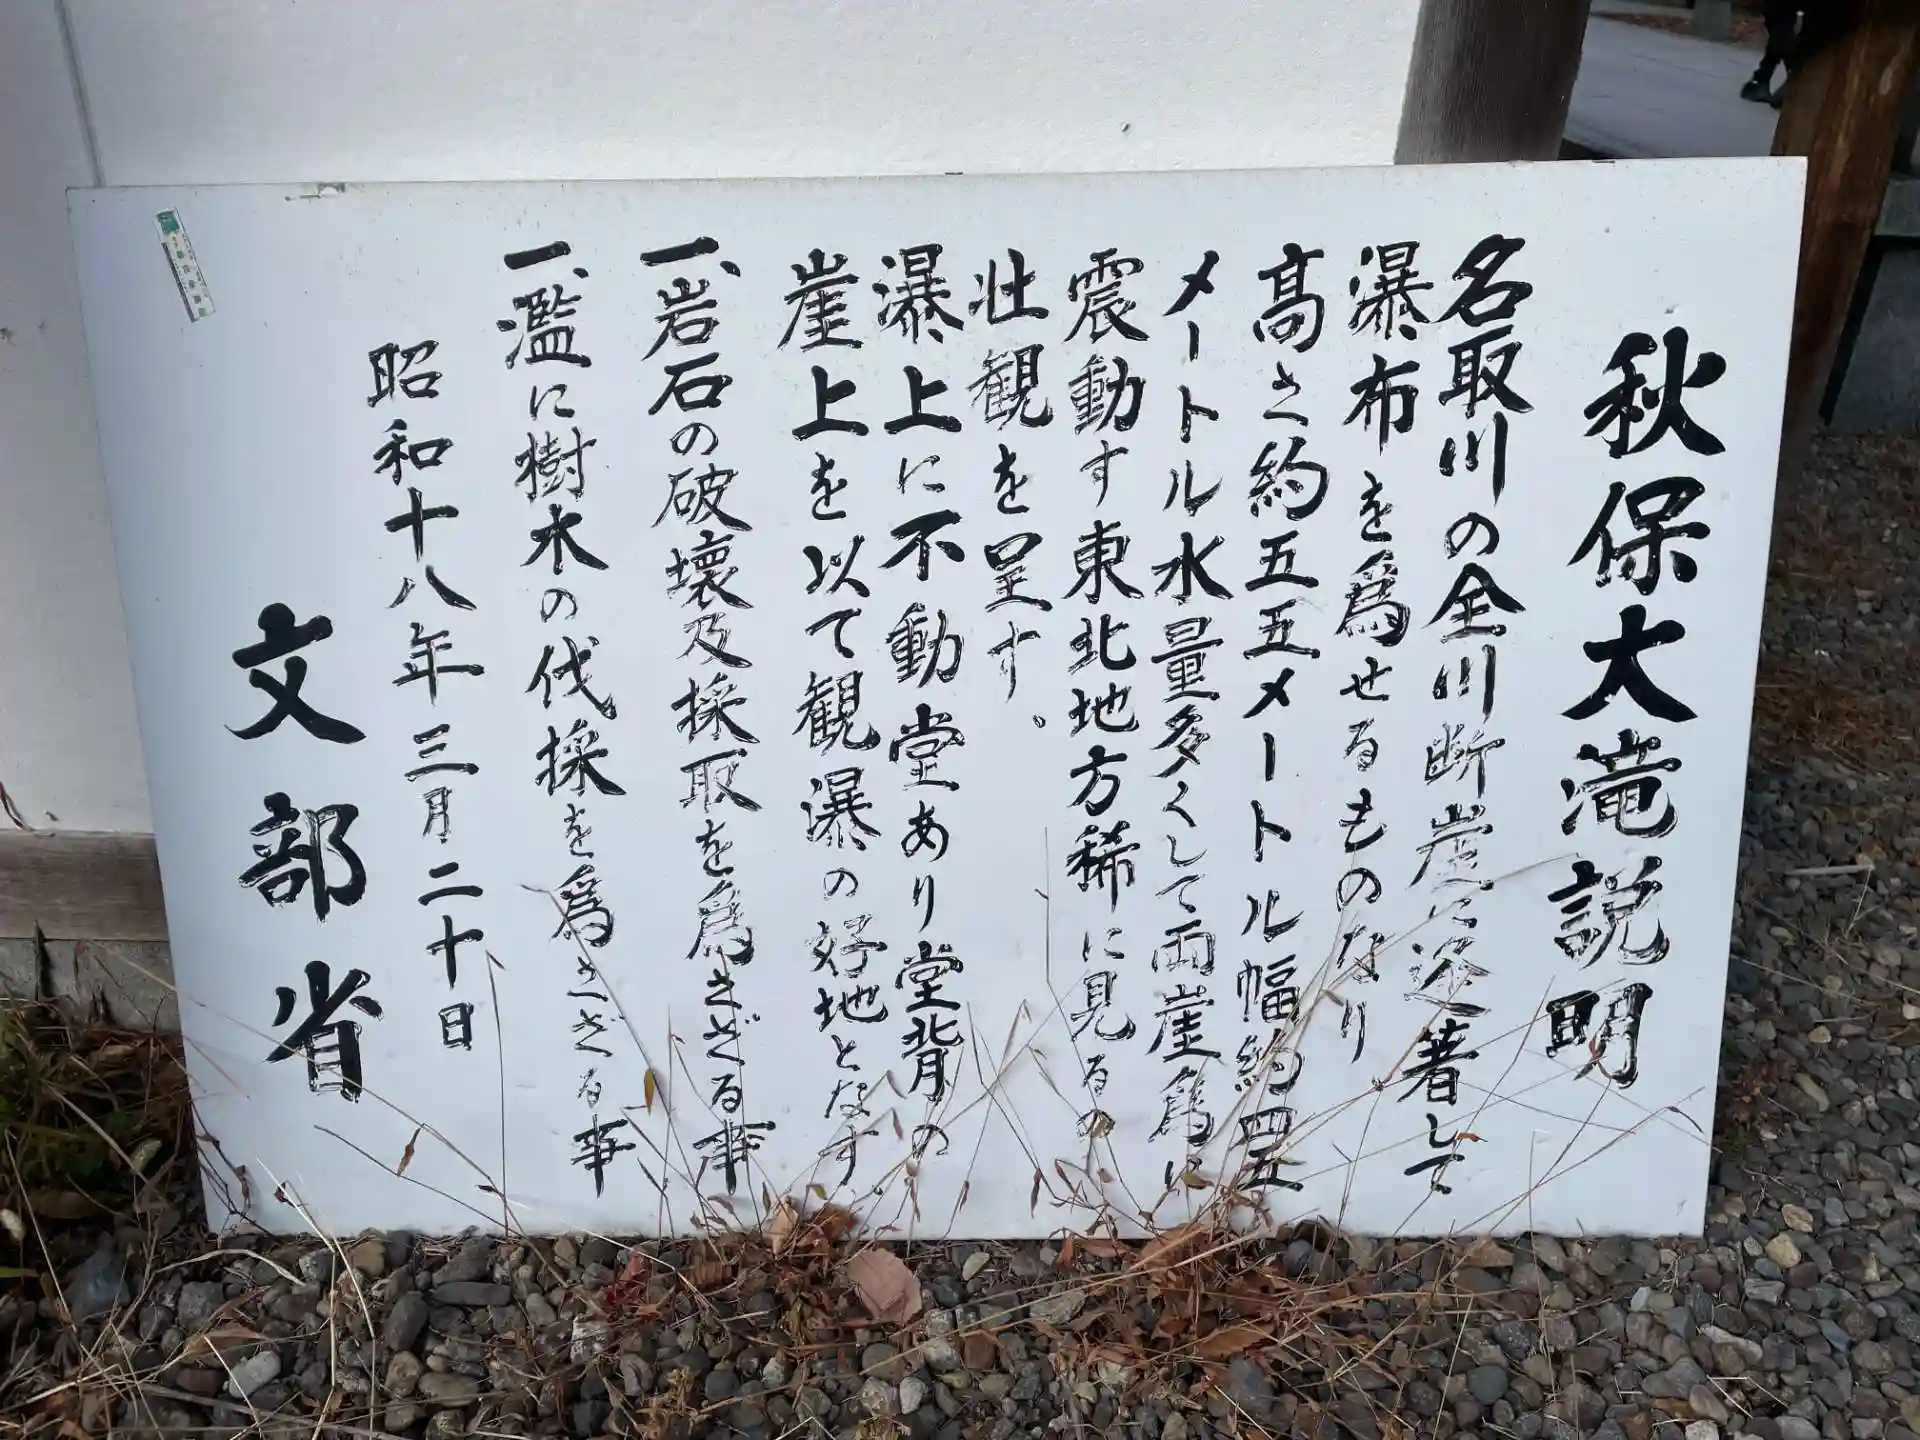 秋保大滝説明
名取川の全川断崖に逢著して
瀑布を爲せるものなり
高さ約五五メートル幅約四五
メートル水量多くして両崖爲に
震動す東北地方稀に見るの
壮観を呈す。
瀑上に不動堂あり堂背の
崖上を以て観瀑の好地となす。
一、岩石の破壊及採取を爲さざる事
一、濫に樹木の伐採を爲さざる事
昭和十八年三月二十日
文部省